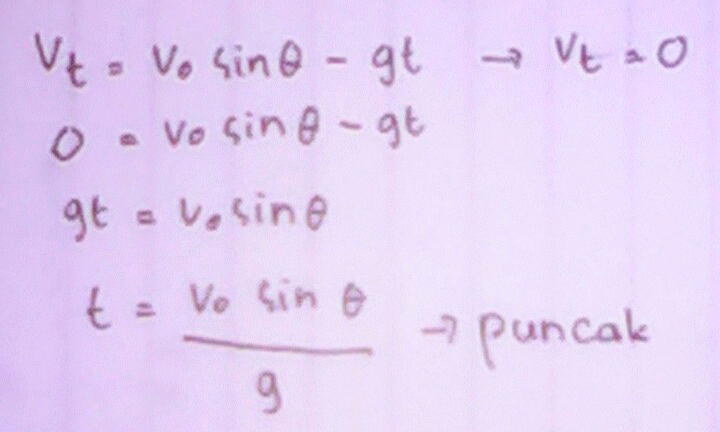 Vt = Vo sinθ - gt → Vt = 0
0 = Vo sinθ - gt
gt = Vo sinθ
t = Vo sin θ / g → puncak